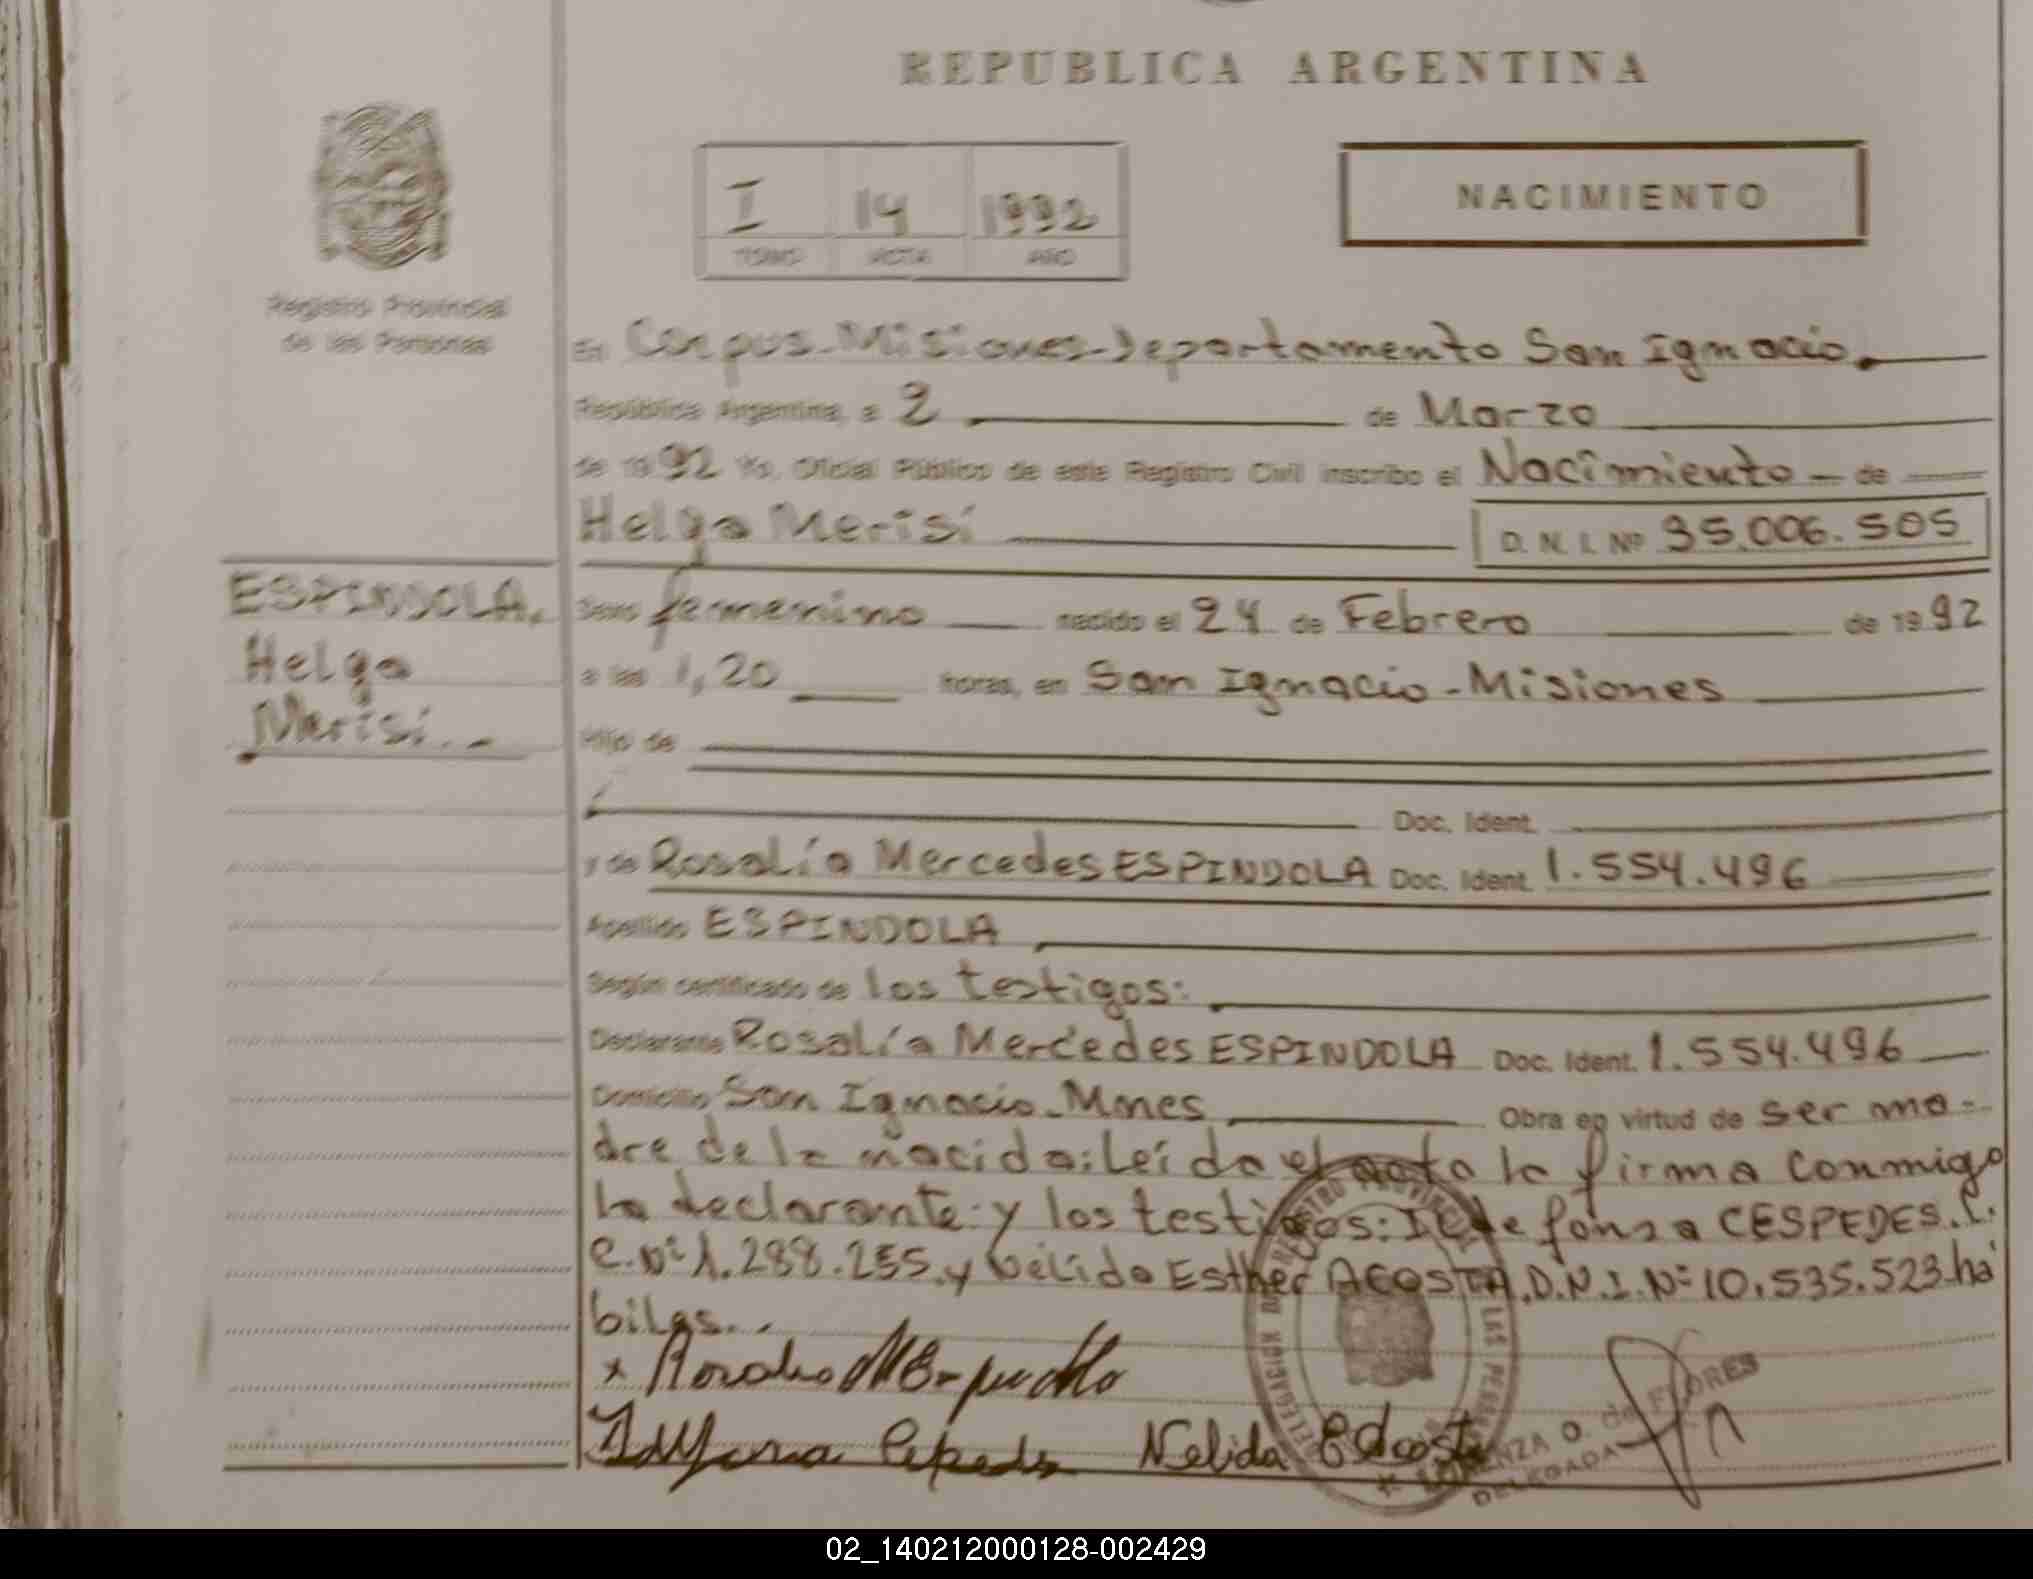 REPUBLICA ARGENTINA
I 14 1992
TOMO ACTA AÑO
NACIMIENTO
Registro Provincial
de las Personas
En Corpus-Misiones-Departamento San Ignacio.
República Argentina, a 2 de Marzo
de 1992 Yo, Oficial Público de este Registro Civil inscribo el Nacimiento - de
Helga Merisi D. N. I. Nº 35.006.505
ESPINDOLA,
Helga
Merisi.-
Sexo femenino nacido el 24 de Febrero de 1992
a las 1,20 horas, en San Ignacio-Misiones
Hijo de
Doc. Ident.
y de Rosalía Mercedes ESPINDOLA Doc. Ident. 1.554.496
Apellido ESPINDOLA
Según certificado de los testigos:
Declarante Rosalía Mercedes ESPINDOLA Doc. Ident. 1.554.496
Domicilio San Ignacio-Mnes Obra en virtud de ser ma-
dre de la nacida: Leída el acta la firma conmigo
la declarante y los testigos: Ildefonsa CESPEDES. L.
C. Nº 1.288.255. y Nélida Esther ACOSTA. D.N.I. Nº 10.535.523 há
biles.-
x
Nelida E Acosta
DELEGACION DEL REGISTRO PROVINCIAL LAS
O. de FLORES
DELEGADA
02_140212000128-002429